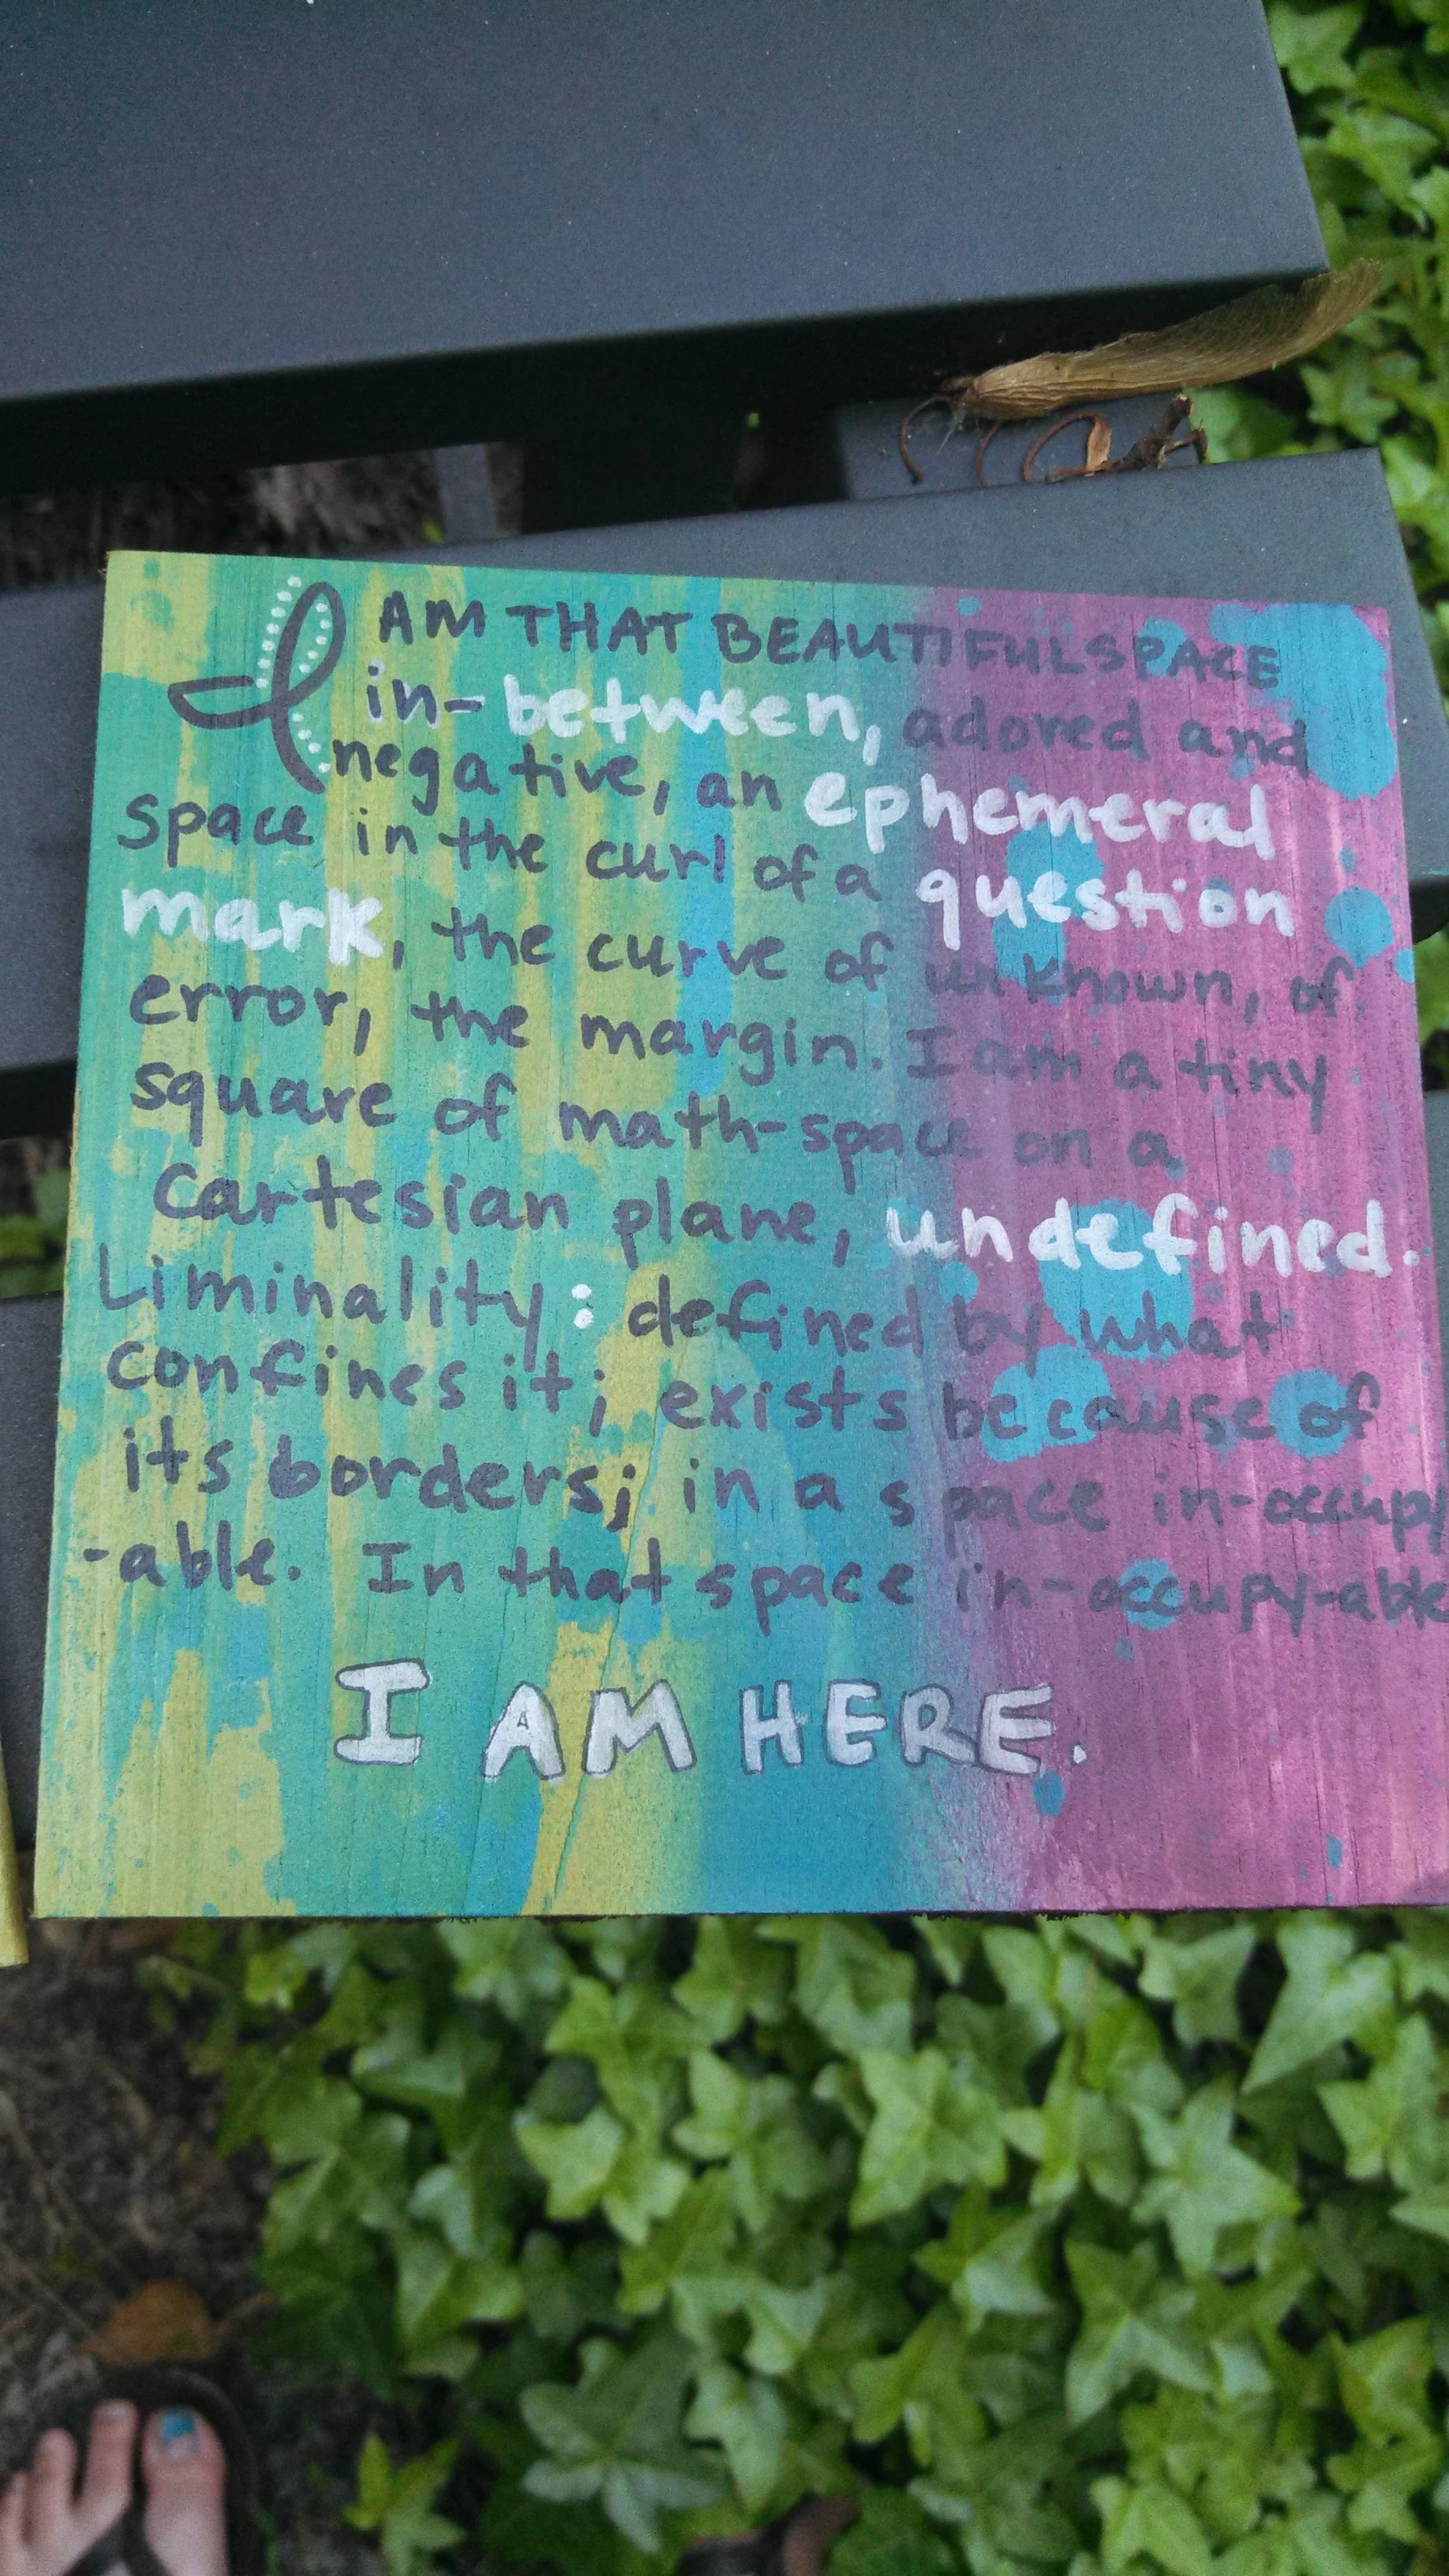 I AM THAT BEAUTIFUL SPACE
in-between, adored and
negative, an ephemeral
space in the curl of a question
mark, the curve of unknown, of
error, the margin. I am a tiny
square of math-space on a
Cartesian plane, undefined.
Liminality: defined by what
confines it; exists because of
its borders; in a space in-occupy
-able. In that space in-occupy-able
I AM HERE.